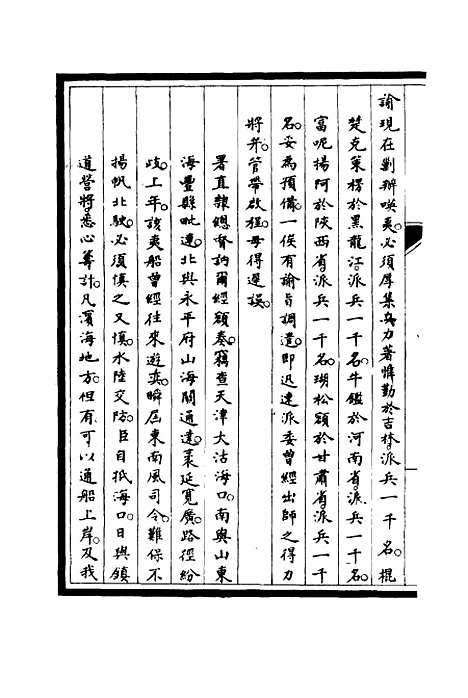 諭現在剿辦𠸄夷。必須厚集兵力。著惟勤於吉林。派兵一千名。棍
楚克策楞於黑龍江。派兵一千名。牛鑑於河南省。派兵一千名。
富呢揚阿於陝西省。派兵一千名。瑚松額於甘肅省。派兵一千
名。妥為預備。一俟有諭旨調遣。即迅速派委曾經出師之得力
將弁。管帶啟程。毋得遲誤。
署直隸總督訥爾經額奏。竊查天津大沽海口。南與山東
海豐縣毗連。北與永平府山海關通連。袤延寬廣。路徑紛
歧。上年。該夷船曾經往來遊奕。瞬屆東南風司令。難保不
揚帆北駛。必須慎之又慎。水陸交防。臣自抵海口。日與鎮
道營將。悉心籌計。凡濱海地方。但有可以通船上岸。及我